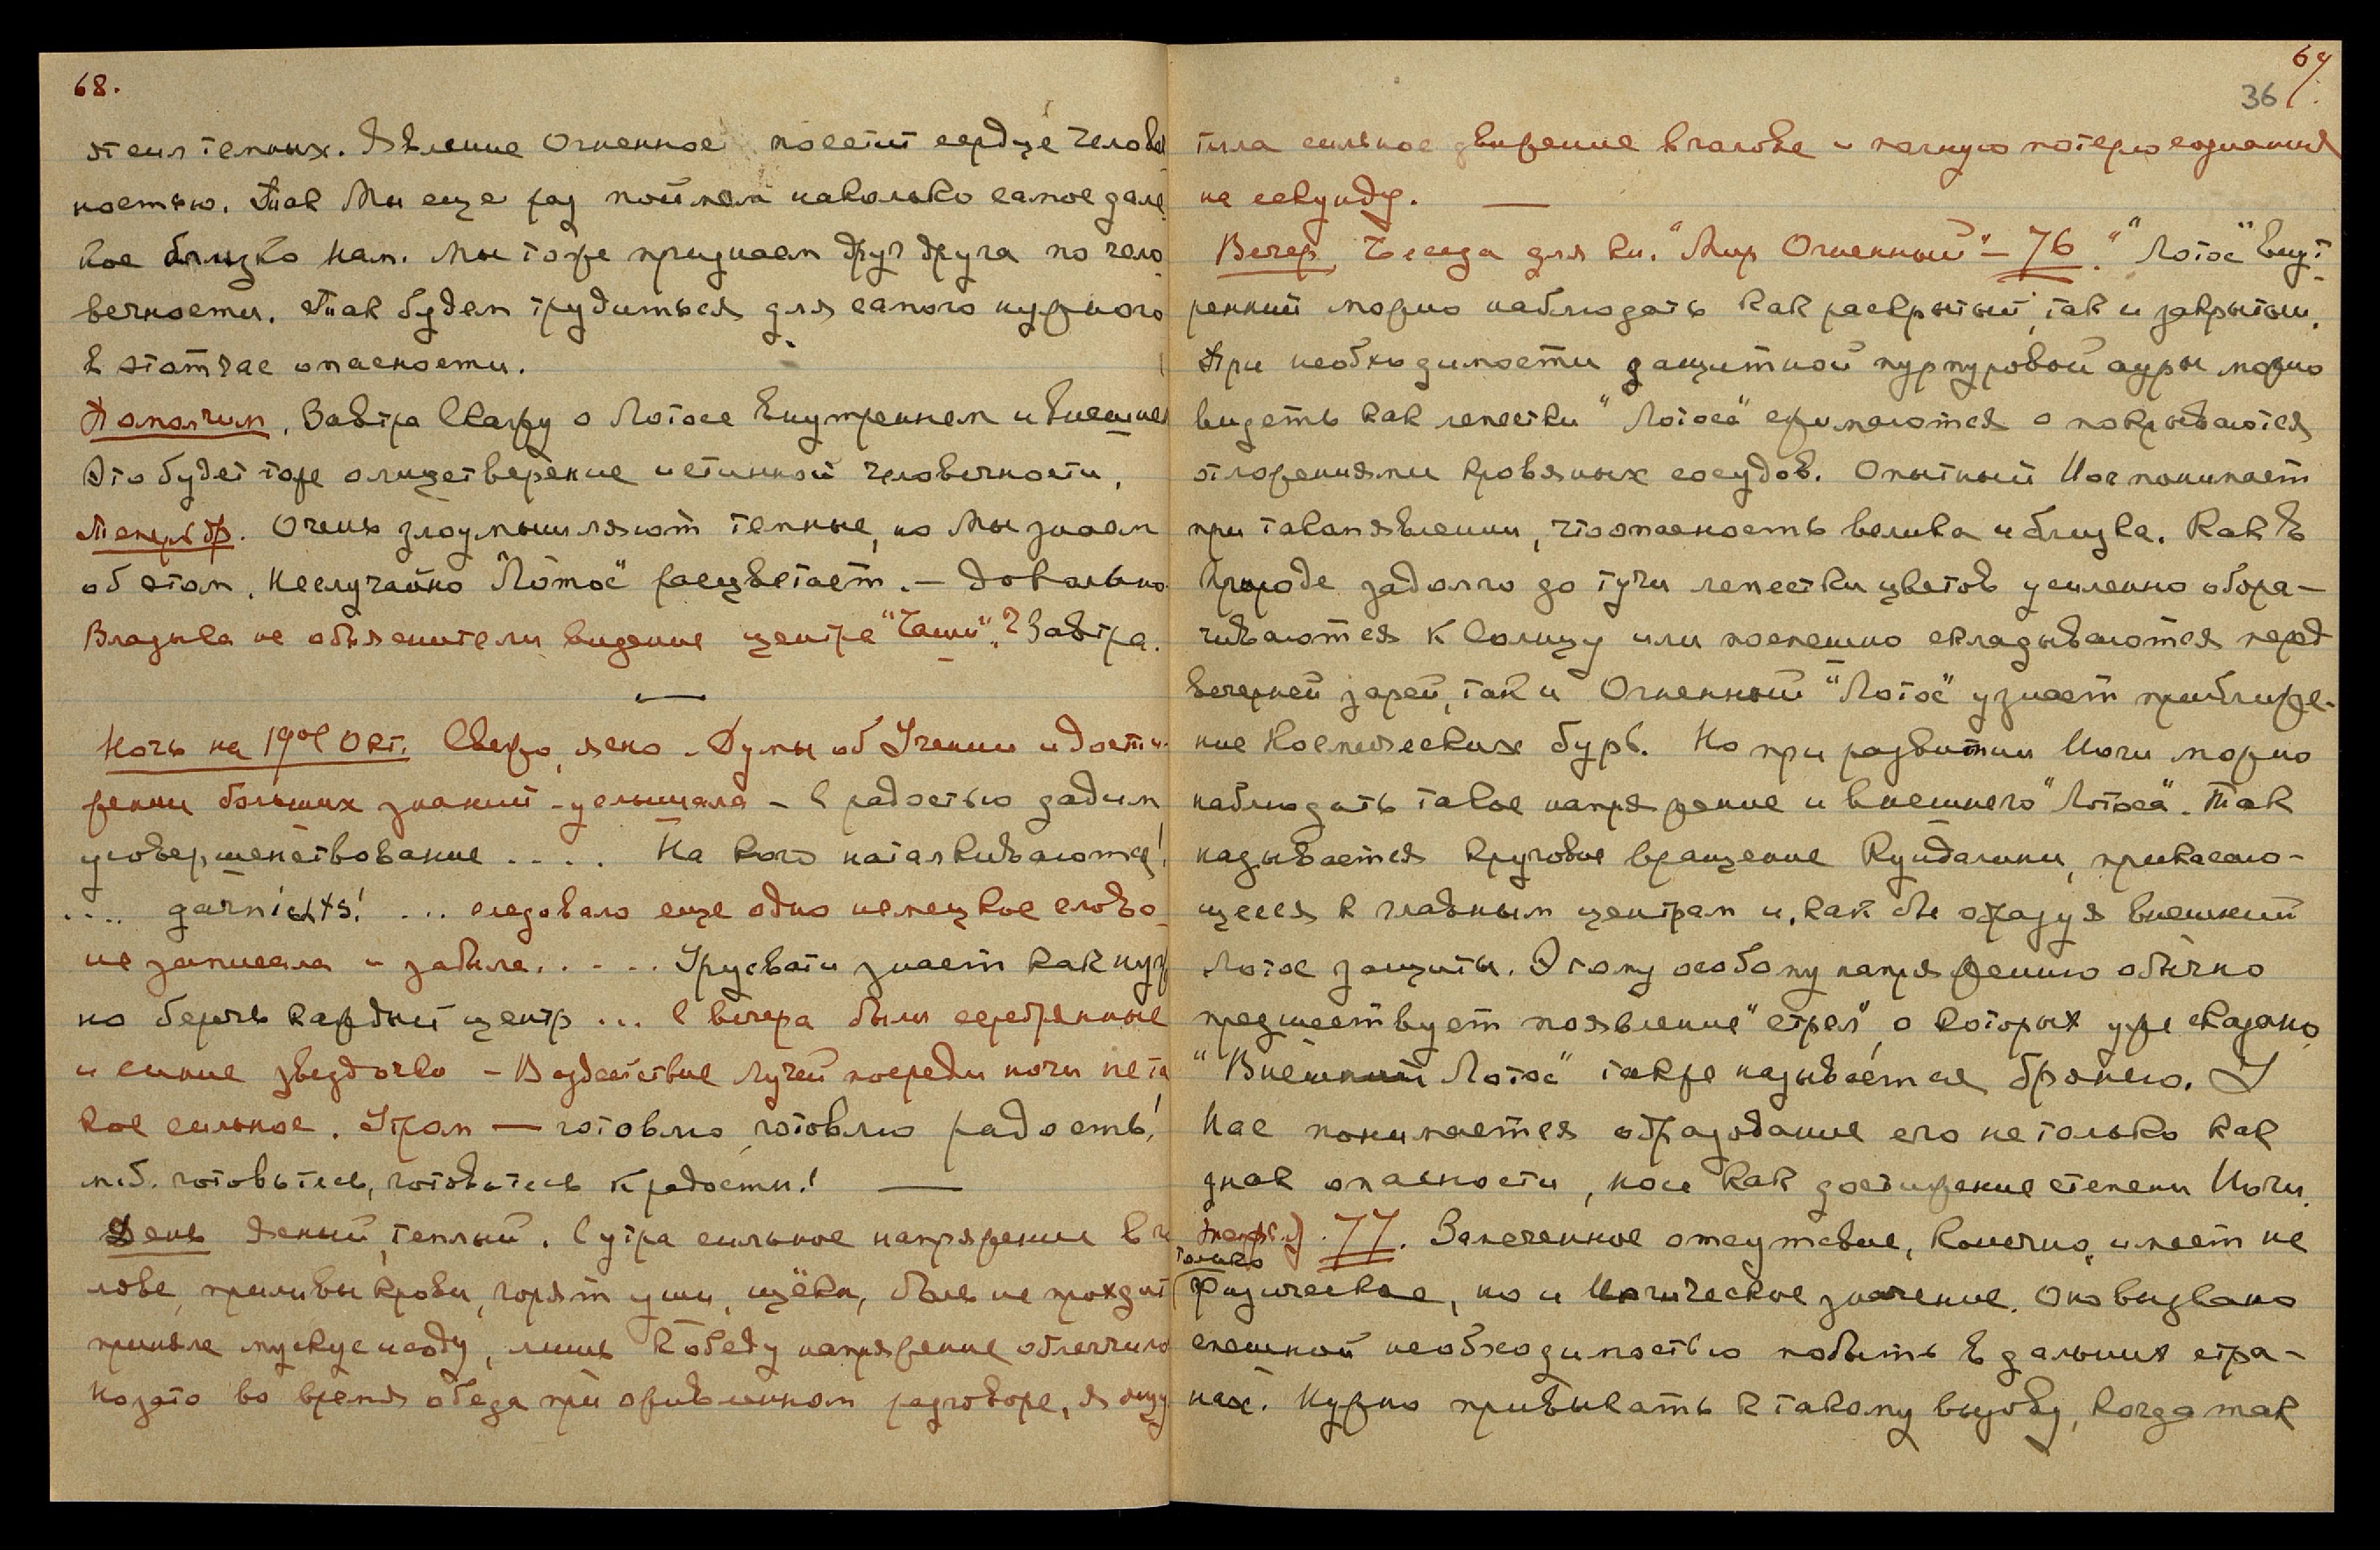 68.
стеил темных. Явление Огненное посетит сердце челове
ностью. Так Мы еще раз поймем насколько самое дале
кое близко Нам. Мы тоже признаем друг друга по чело
вечности. Так будем трудиться для самого нужного
в этот час опасности.
Помолчим. Завтра Скажу о Лотосе Внутреннем и внешнем
Это будет тоже олицетворение истинной человечности.
Теперь др. Очень злоумышляют темные, но Мы знаем
об этом. Неслучайно "Лотос" расцветает. — Довольно.
Владыка не объяснит ли видение центра "Чаши"? Завтра.
—
Ночь на 19ое Окт. Свежо, ясно. Думы об Учении и дости-
жении больших знаний — услышала — С радостью дадим
усовершенствование .... На кого наталкиваются!
.... garnichts! ... следовало еще одно немецкое слово
не записала и забыла..... Урусвати знает как нуж
но беречь каждый центр ... С вечера были серебряные
и синие звездочки — Воздействие Лучей посреди ночи не та
кое сильное. Утром — готовлю, готовлю радость!
м.б. готовьтесь, готовьтесь к радости! —
День Ясный, теплый. С утра сильное напряжение в го
лове, приливы крови, горят уши, щёки, боль не проходит
приняла мускус и соду, лишь к обеду напряжение облегчило
но зато во время обеда при оживленном разговоре, я ощу
69.
36
тила сильное движение в голове и полную потерю сознания
на секунду. —
Вечер. Беседа для кн. "Мир Огненный" — 76. "Лотос" Внут-
ренний можно наблюдать как раскрытый, так и закрытым.
При необходимости защитной пурпуровой ауры можно
видеть как лепестки "Лотоса" сжимаются и покрываются
отложениями кровяных сосудов. Опытный Иог понимает
при таком явлении, что опасность велика и близка. Как в
природе задолго до тучи лепестки цветов усиленно обора-
чиваются к Солнцу или поспешно складываются перед
вечерней зарей, так и Огненный "Лотос" узнает приближе-
ние Космических бурь. Но при развитии Иоги можно
наблюдать такое напряжение и внешнего "Лотоса". Так
называется круговое вращение Кундалини, прикасаю-
щееся к главным центрам и, как бы образуя внешний
Лотос защиты. Этому особому напряжению обычно
предшествует появление "стрел", о которых уже сказано.
"Внешний Лотос" также называется бронею. У
Нас понимается образование его не только как
знак опасности, но и как достижение степени Иоги.
77. Замеченное отсутствие, конечно, имеет не
только
физическое, но и Иогическое значение. Оно вызвано
спешной необходимостью побыть в дальних стра-
нах. Нужно привыкать к такому вызову, когда так